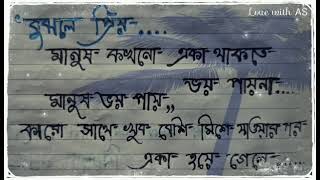 Love with AS
বুঝলে প্রিয়-....
মানুষ- কখনো- একা থাকতে-
ভয়- পায়না-....
মানুষ ভয় পায়,,
কারো- সাথে- খুব- বেশি- মিশে- যাওয়ার পর-
একা- হয়ে- গেলে-.....